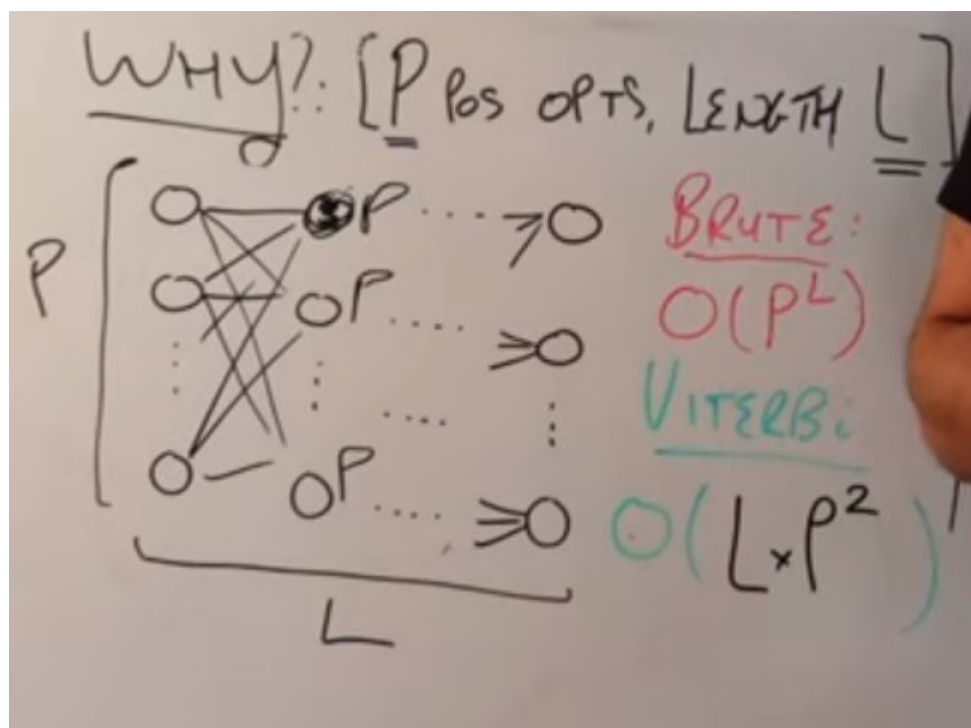 WHY?: [P POS OPTS, LENGTH L]
P
P
P
P
L
BRUTE:
O(P^L)
VITERBi
O(L×P²)